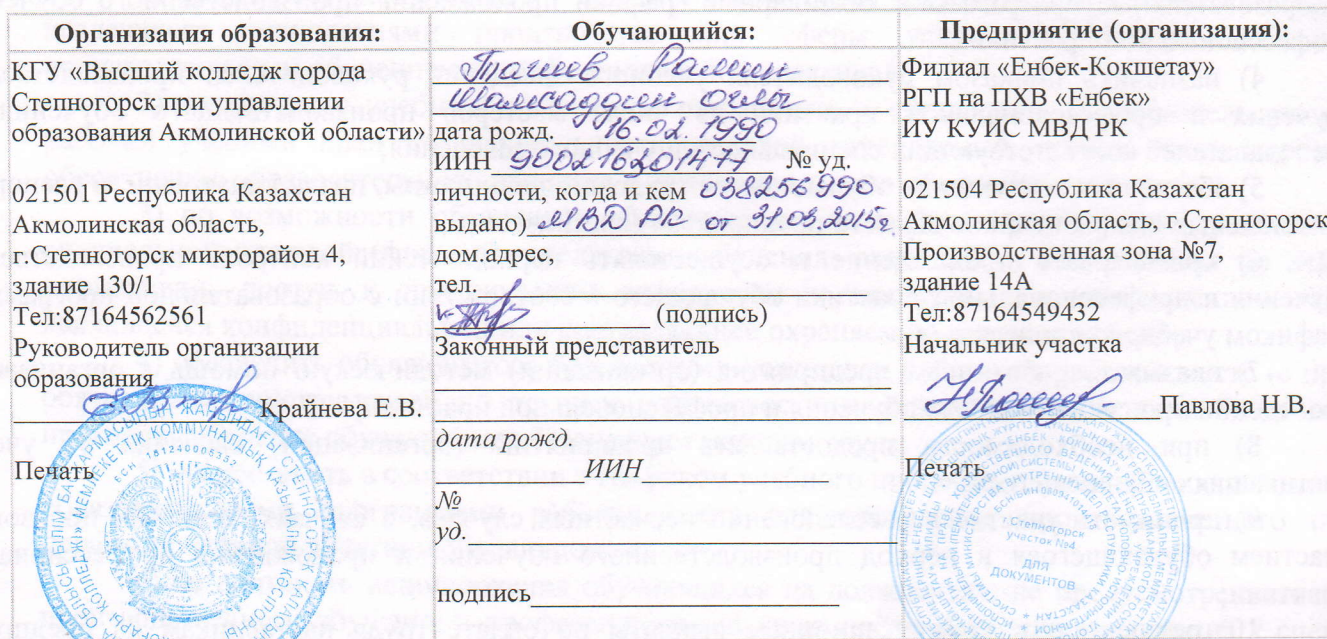 Организация образования:
КГУ «Высший колледж города
Степногорск при управлении
образования Акмолинской области»
021501 Республика Казахстан
Акмолинская область,
г.Степногорск микрорайон 4,
здание 130/1
Тел:87164562561
Руководитель организации
образования
Крайнева Е.В.
Печать
Обучающийся:
Тагиев Рамин
Шамсаддин оглы
дата рожд. 16.02.1990
ИИН 900216201477 № уд.
личности, когда и кем 038256990
выдано) МВД РК от 31.03.2015г
дом.адрес,
тел.
(подпись)
Законный представитель
дата рожд.
ИИН
№
уд.
подпись
Предприятие (организация):
Филиал «Енбек-Кокшетау»
РГП на ПХВ «Енбек»
ИУ КУИС МВД РК
021504 Республика Казахстан
Акмолинская область, г.Степногорск
Производственная зона №7,
здание 14А
Тел:87164549432
Начальник участка
Павлова Н.В.
Печать
Степногорск
участок №4
ДЛЯ
ДОКУМЕНТОВ